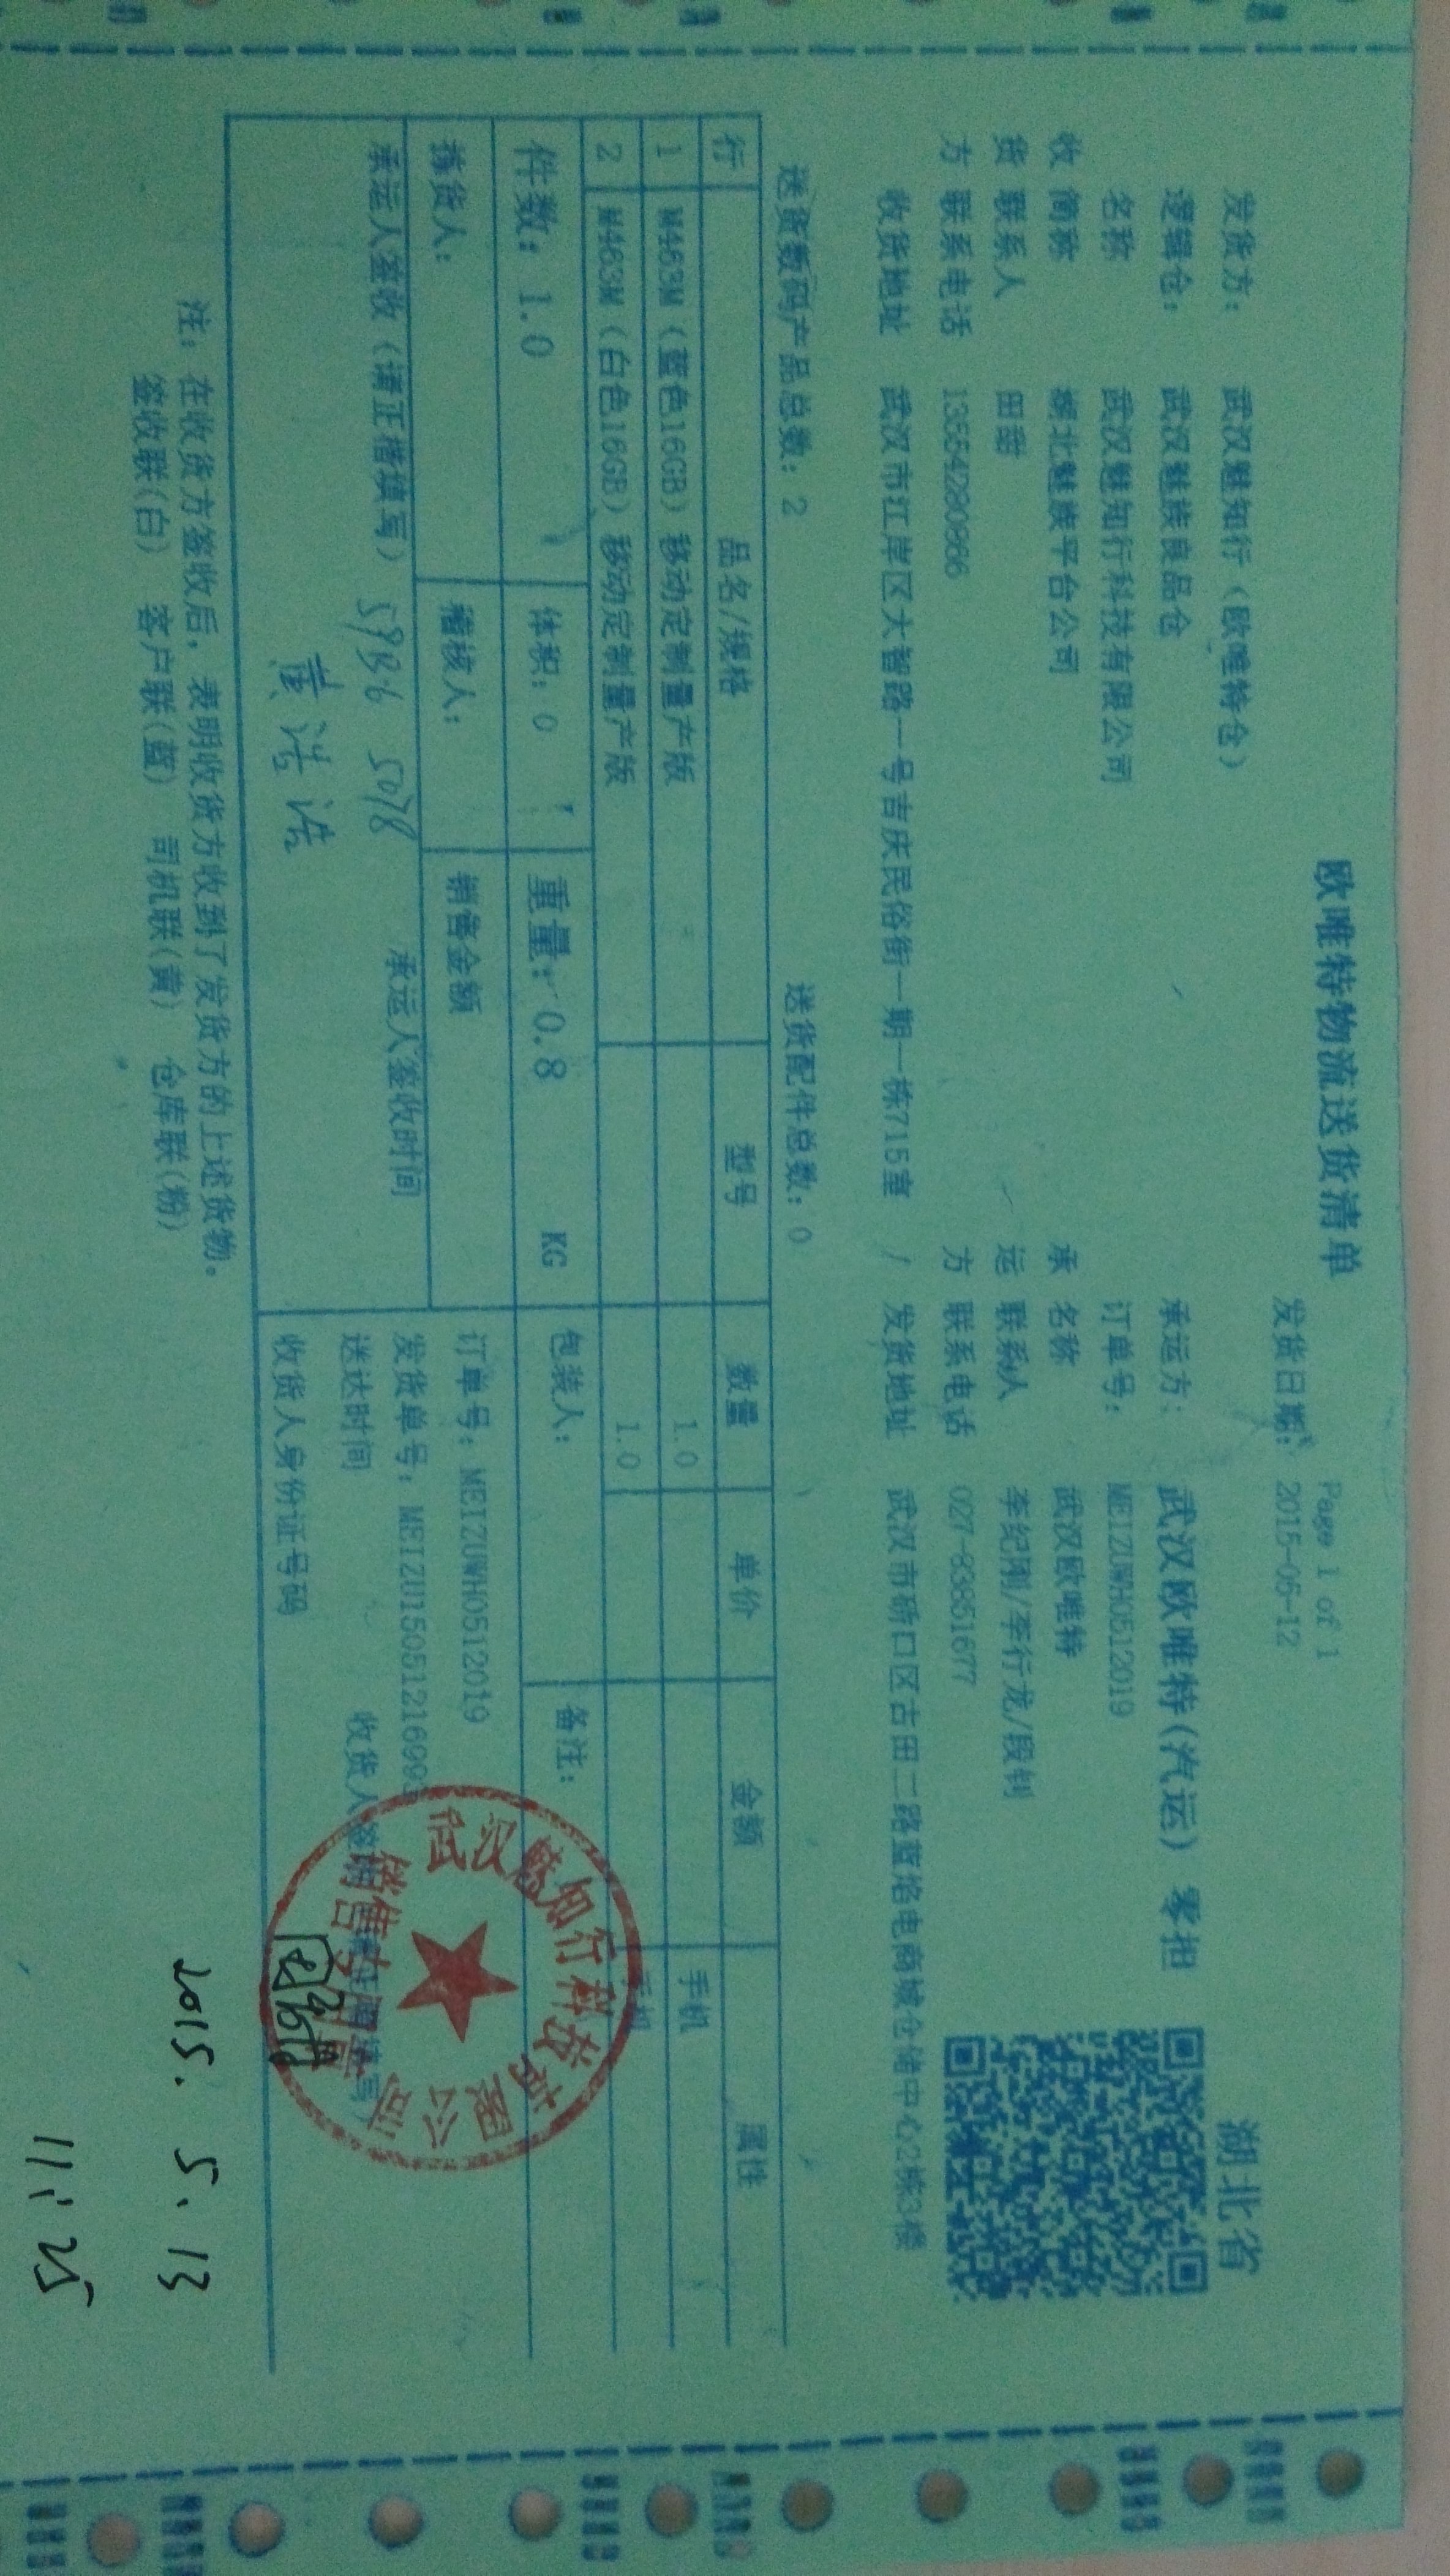 欧唯特物流送货清单
Page 1 of 1
发货日期: 2015-05-12
湖北省
发货方: 武汉魅知行(欧唯特仓)
逻辑仓: 武汉魅族良品仓
承运方: 武汉欧唯特(汽运) 零担
名称 武汉魅知行科技有限公司
订单号: MEIZUWH0512019
收 简称 湖北魅族平台公司
承 名称 武汉欧唯特
货 联系人 田甜
运 联系人 李纪刚/李行龙/段钊
方 联系电话 13554280966
方 联系电话 027-83851677
收货地址 武汉市江岸区大智路一号吉庆民俗街一期一栋715室
/ 发货地址 武汉市硚口区古田二路蓝焰电商城仓储中心2栋3楼
送货数码产品总数: 2 送货配件总数: 0
行 品名/规格 型号 数量 单价 金额 属性
1 M463M(蓝色16GB)移动定制量产版 1.0 手机
2 M463M(白色16GB)移动定制量产版 1.0 手机
件数: 1.0 体积: 0 重量: 0.8 KG 包装人: 备注:
拣货人: 播核人: 销售金额
订单号: MEIZUWH0512019
承运人签收(请正楷填写) 承运人签收时间
发货单号: MEIZU150512169
送达时间 收货人签
黄浩浩
收货人身份证号码
武汉魅知行科技有限公司
销售专用章
田甜
注: 在收货方签收后, 表明收货方收到了发货方的上述货物。
签收联(白) 客户联(蓝) 司机联(黄) 仓库联(粉)
2015. 5. 13
11:25